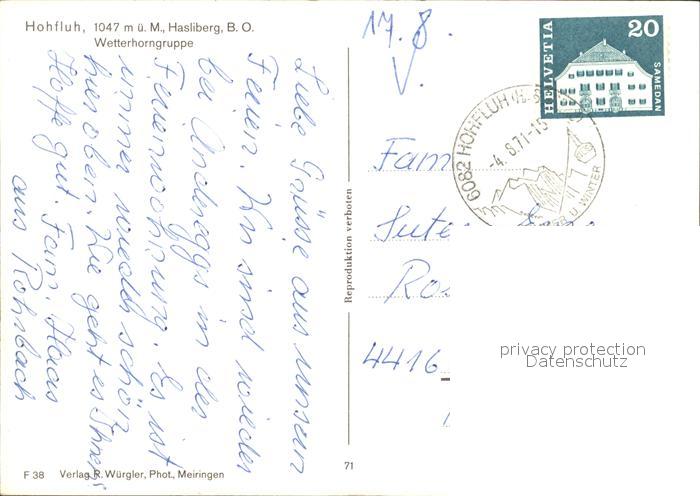 Hohfluh, 1047 m ü. M., Hasliberg, B. O.
Wetterhorngruppe
Liebe Grüsse aus unsern
Ferien. Wir sind wieder
bei Andereggs in der
Ferienwohnung. Es ist
immer wieder schön
hier oben. Wie geht es Ihnen?
Hoffe gut. Fam. Haas
aus Rohrbach
F 38 Verlag R. Würgler, Phot., Meiringen
Reproduktion verboten
71
17. 8.
V.
HELVETIA
20
SAMEDAN
6082 HOHFLUH
-4. 8.71-15
U. WINTER
Fam
Sute
Ros
4416
privacy protection
Datenschutz